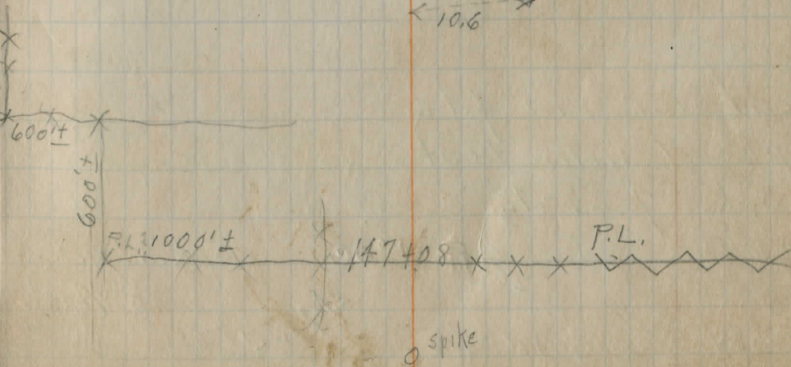 10.6
600'±
600'±
P.L. 1000'± 147+08 P.L.
spike